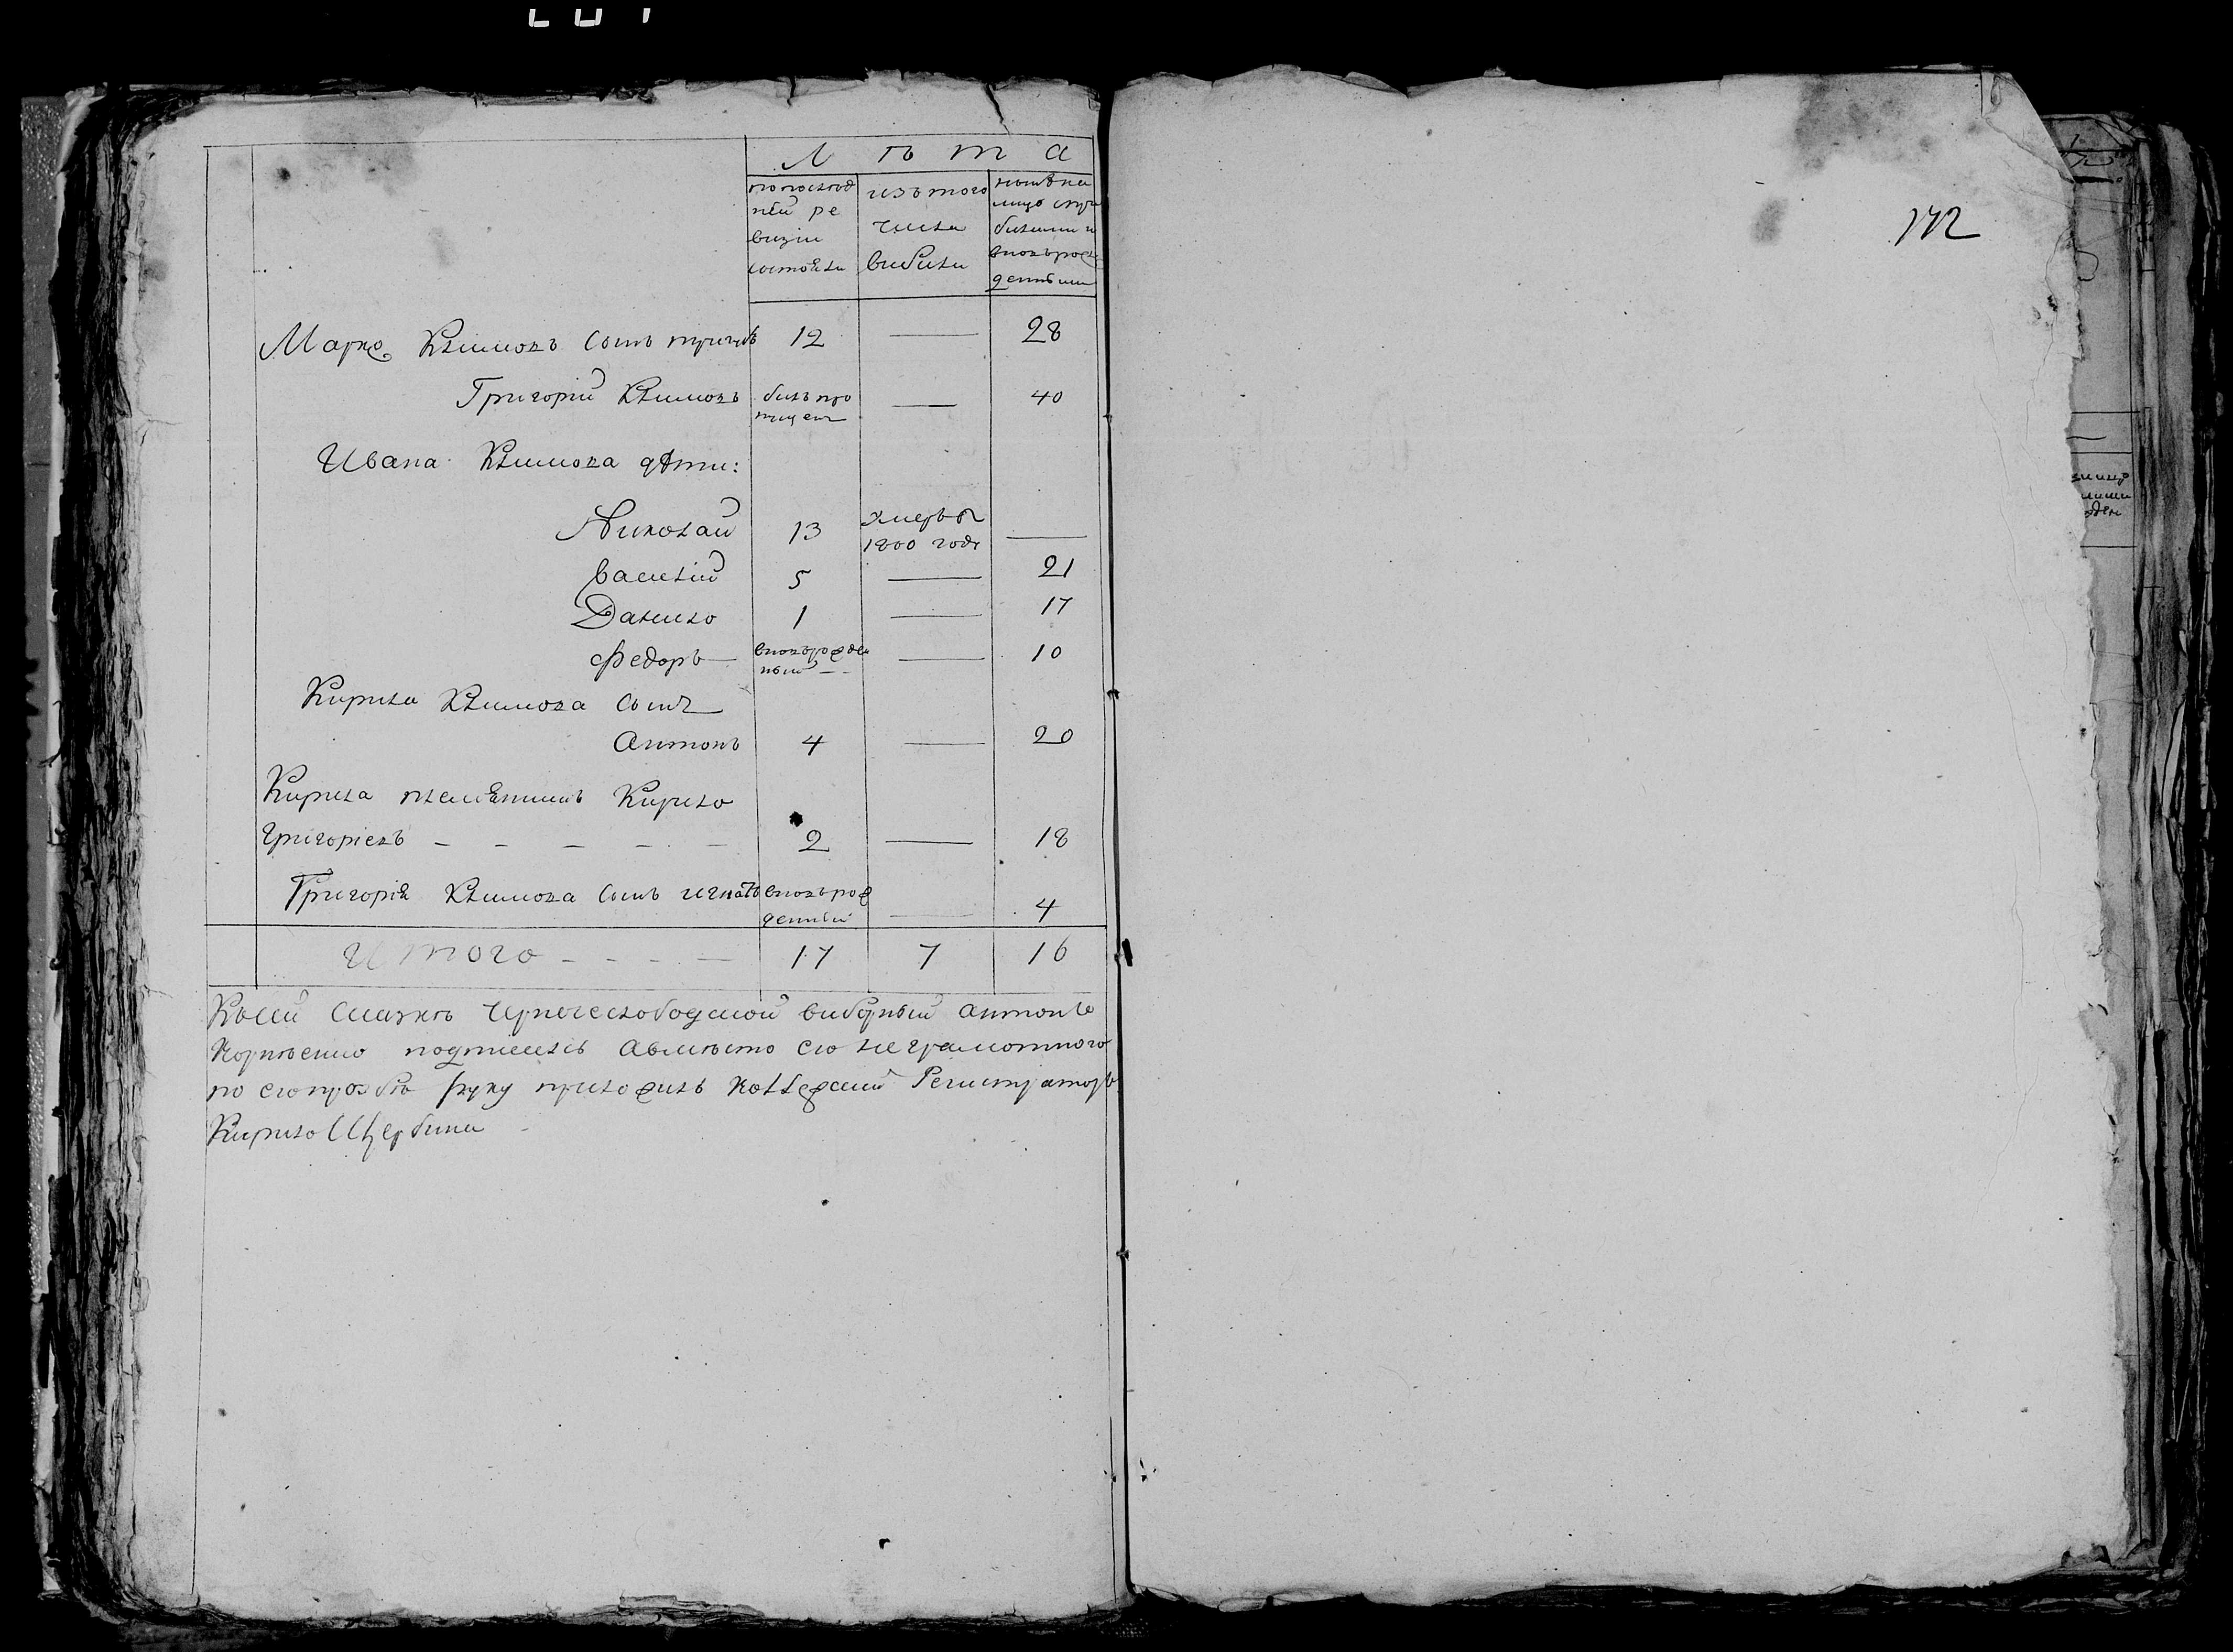 Л ѣ т а
по послѣд
ней ре
визіи
состояли
изъ того
числа
выбыли
нынѣ на
лицо
былыми и
вновърож
денными
Марко Климовъ сынъ 12 — 28
Григорій Климовъ былъ про
пущенъ — 40
Ивана Климова дѣти:
Николай 13 умервъ
1800 годе —
Василій 5 — 21
Данило 1 — 17
Федоръ — вновърожден
ный — — 10
Кирила Климова сынъ
Антонъ 4 — 20
Кирила племянникъ Кирило
Григоріевъ — — — — — 2 — 18
Григорія Климова сынъ Игнатъ вновърож
денный — 4
Итого — — — — 17 7 16
Ксей скаскѣ выборный Антонъ
Корнѣенко подписалъ Авместо его неграмотного
по его прозбѣ руку приложилъ Коллежский Регистраторъ
Кирило Щербина
172